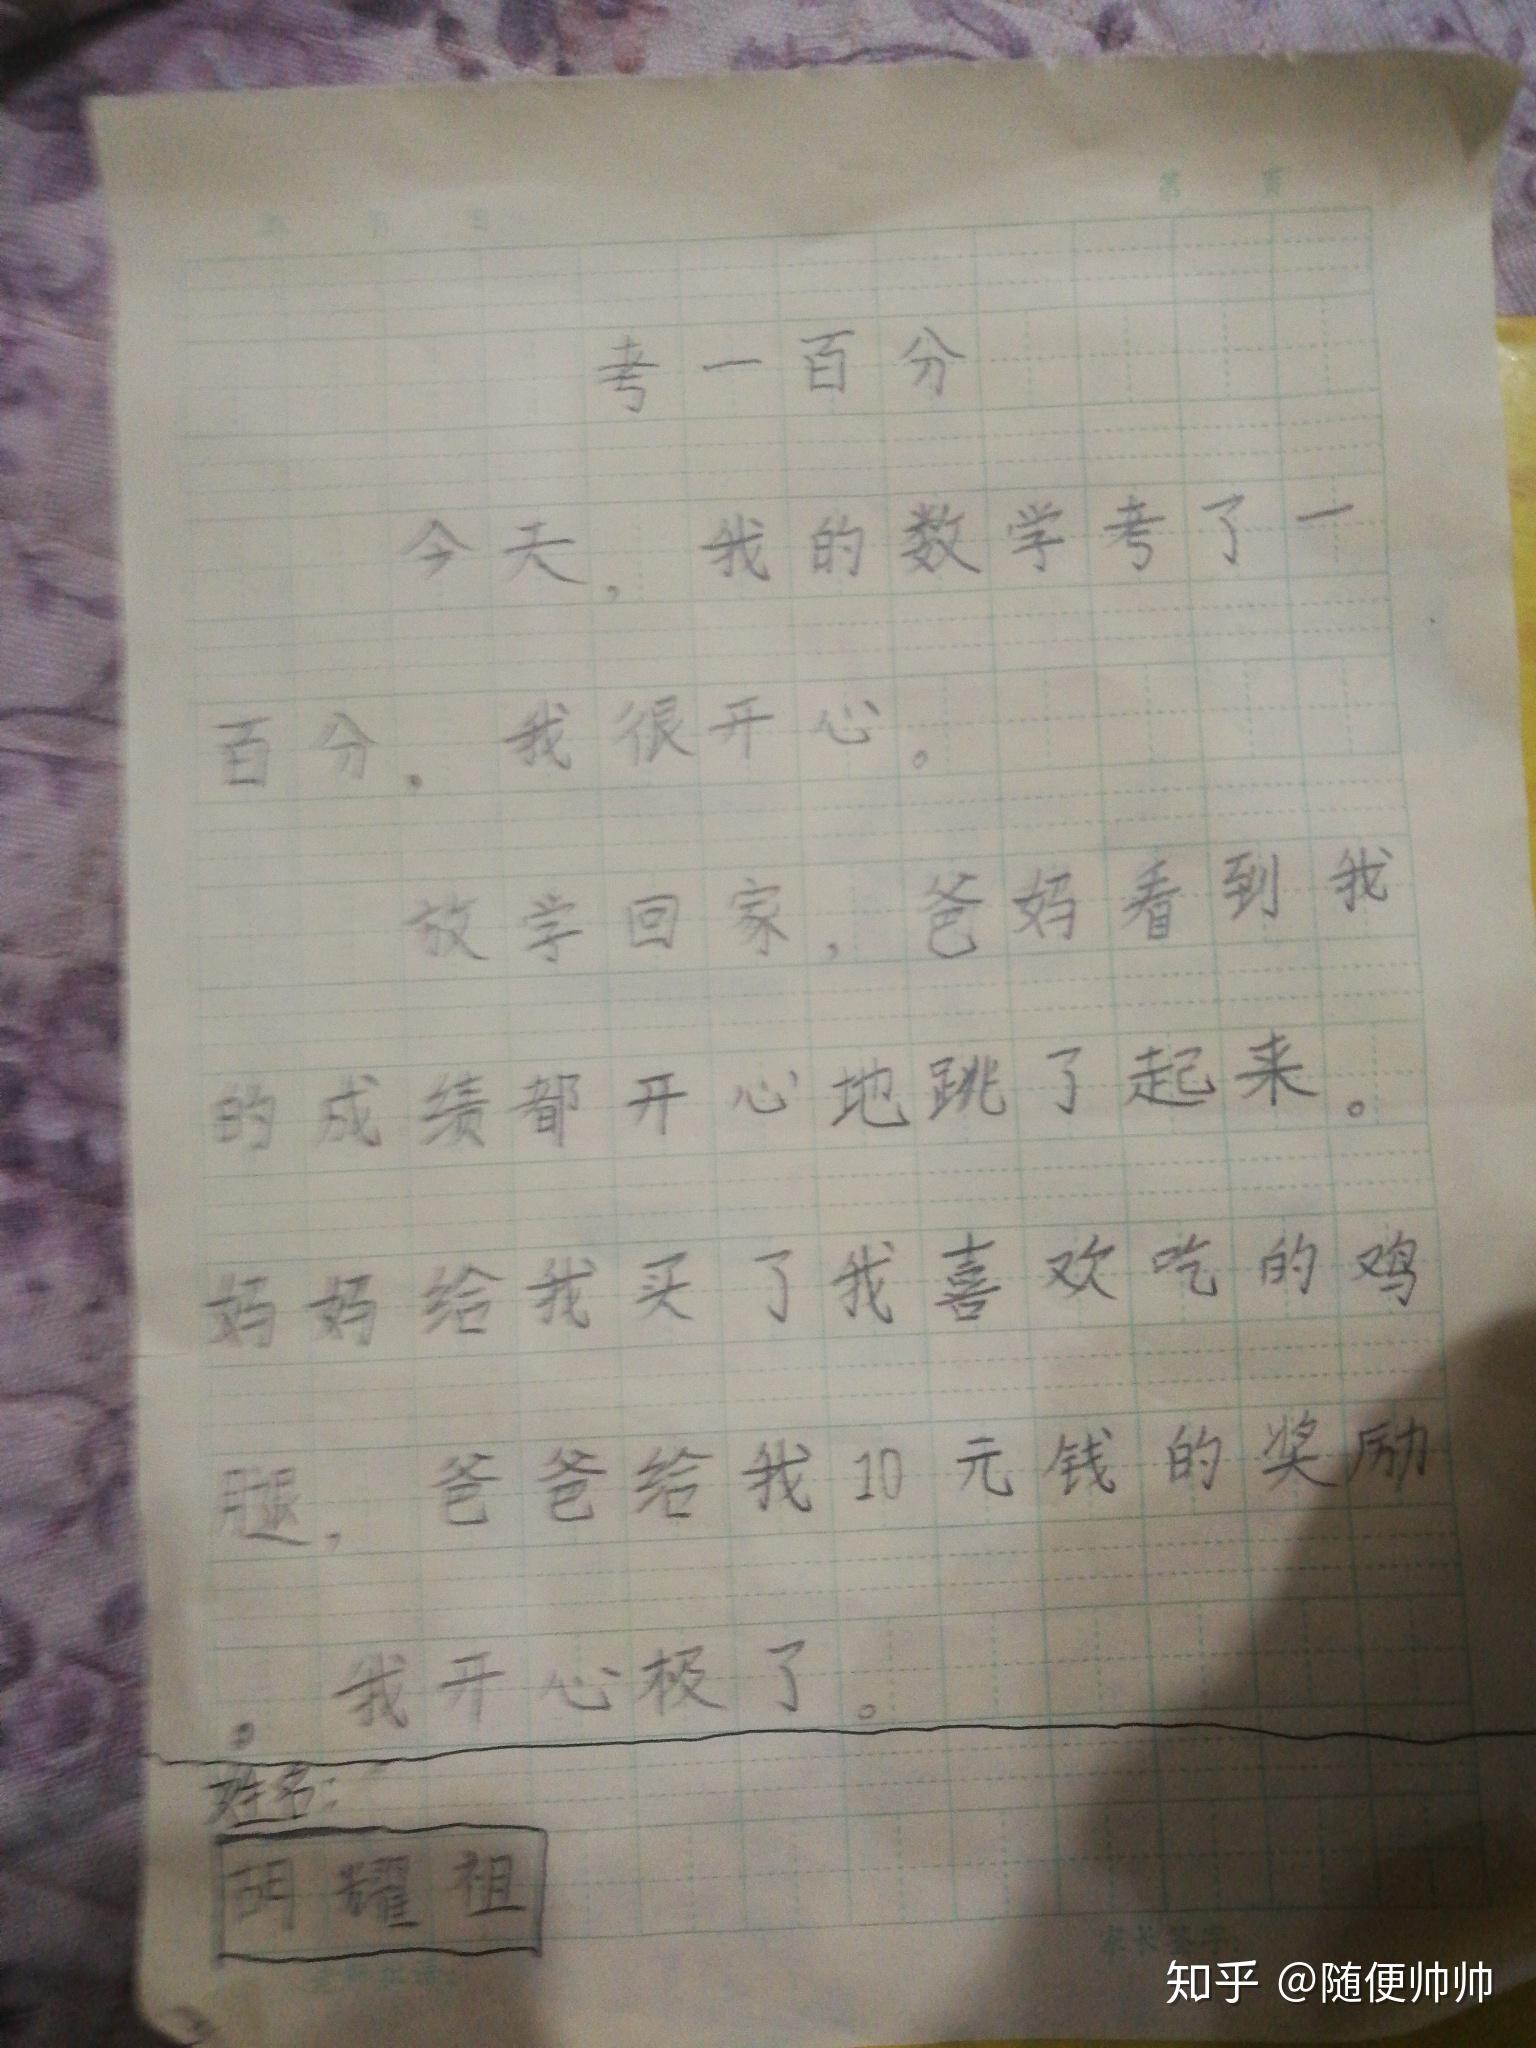 第 页
考一百分
今天,我的数学考了一
百分.我很开心。
放学回家,爸妈看到我
的成绩都开心地跳了起来。
妈妈给我买了我喜欢吃的鸡
腿,爸爸给我10元钱的奖励
。我开心极了。
姓名:
胡耀祖
家长签字:
知乎 @随便帅帅